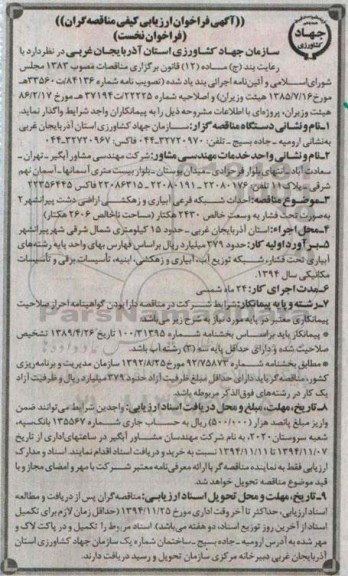 ((آگهی فراخوان ارزیابی کیفی مناقصه‌گران))
(فراخوان نخست)
جهاد کشاورزی
سازمان جهاد کشاورزی استان آذربایجان غربی در نظر دارد با
رعایت بند (ج) ماده (۱۲) قانون برگزاری مناقصات مصوب ۱۳۸۳ مجلس
شورای اسلامی و آئین‌نامه اجرائی بند یاد شده (تصویب نامه شماره ۸۴۱۳۶/ت۳۳۵۶۰هـ
مورخ ۱۳۸۵/۷/۱۶ هیئت وزیران) و اصلاحیه شماره ۲۲۲۲۵/ت۳۷۱۹۴هـ مورخ ۸۶/۲/۱۷
هیئت وزیران، پروژه‌ای با اطلاعات مشروحه ذیل را به پیمانکاران واجد شرایط واگذار نماید.
۱-نام و نشانی دستگاه مناقصه گزار: سازمان جهاد کشاورزی استان آذربایجان غربی
به نشانی ارومیه - جاده بسیج - تلفن: ۳۲۷۲۰۹۷۰-۰۴۴ فاکس: ۳۲۷۲۰۹۶۷-۰۴۴
۲-نام و نشانی واحد خدمات مهندسی مشاور: شرکت مهندسی مشاور آبگیر - تهران -
سعادت آباد - انتهای بلوار فرحزادی - میدان بوستان - بلوار بیست متری آسمانها - آسمان نهم
شرقی - پلاک ۱۰ تلفن: ۲۲۰۸۰۱۷۶ - ۲۲۰۸۰۱۹۱ - ۲۲۰۸۶۳۱۵ فاکس: ۲۲۳۵۶۴۴۵
۳-موضوع مناقصه: احداث شبکه فرعی آبیاری و زهکشی اراضی دشت پیرانشهر ۲
به‌صورت تحت فشار به وسعت خالص ۲۴۳۰ هکتار (مساحت ناخالص ۲۶۰۶ هکتار)
۴-محل اجراء: استان آذربایجان غربی - حدود ۱۵ کیلومتری شمال شرقی شهر پیرانشهر
۵-برآورد اولیه کار: حدود ۳۷۹ میلیارد ریال براساس فهارس بهای واحد پایه رشته‌های
آبیاری تحت فشار، شبکه توزیع آب، آبیاری و زهکشی، ابنیه، تأسیسات برقی و تأسیسات
مکانیکی سال ۱۳۹۴.
۶-مدت اجرای کار: ۲۴ ماه شمسی
۷-رشته و پایه پیمانکار: شرایط شرکت در مناقصه دارا بودن گواهینامه احراز صلاحیت
پیمانکاری معتبر در پایه مورد نیاز به شرح زیر می‌باشد:
* پیمانکار باید براساس بخشنامه شماره ۱۰۰/۳۱۳۹۵ مورخ ۱۳۸۹/۴/۲۶ تشخیص
صلاحیت شده و دارای حداقل پایه سه (۳) رشته آب باشد.
* مطابق بخشنامه شماره ۹۲/۷۵۸۷۳ مورخ ۱۳۹۲/۸/۲۵ سازمان مدیریت و برنامه‌ریزی
کشور، مناقصه گر باید دارای حداقل مبلغ ظرفیت آزاد حدود ۳۷۹ میلیارد ریال و ظرفیت آزاد
یک کار در رشته‌های فوق‌الذکر مربوطه باشد.
۸-تاریخ، مهلت، مبلغ و محل دریافت اسناد ارزیابی: واجدین شرایط می‌توانند ضمن
واریز مبلغ پانصد هزار (۵۰۰/۰۰۰) ریال به حساب جاری شماره ۱۳۵۵۶۷ بانک سپه،
شعبه سروستان ۲۰۲۰، به نام شرکت مهندسان مشاور آبگیر در ساعتهای اداری از تاریخ
۱۳۹۴/۱۱/۰۷ تا ۱۳۹۴/۱۱/۱۱ نسبت به خرید و دریافت اسناد اقدام نمایند. اسناد و مدارک
ارزیابی فقط به نماینده مناقصه گر با ارائه معرفی‌نامه معتبر شرکت با مهر و امضای مجاز و با
قید موضوع مناقصه تحویل خواهد شد.
۹-تاریخ، مهلت و محل تحویل اسناد ارزیابی: مناقصه‌گران پس از دریافت و مطالعه
اسناد ارزیابی، حداکثر تا آخر وقت اداری مورخ ۱۳۹۴/۱۱/۲۵ (حداقل زمان لازم برای تکمیل
اسناد از آخرین روز توزیع اسناد، دو هفته می‌باشد)، اسناد مربوط را تکمیل و در پاکت لاک و
مهر شده به آدرس ارومیه - جاده بسیج - ساختمان شماره یک سازمان جهاد کشاورزی استان
آذربایجان غربی دبیرخانه مرکزی سازمان تحویل و رسید دریافت دارند.